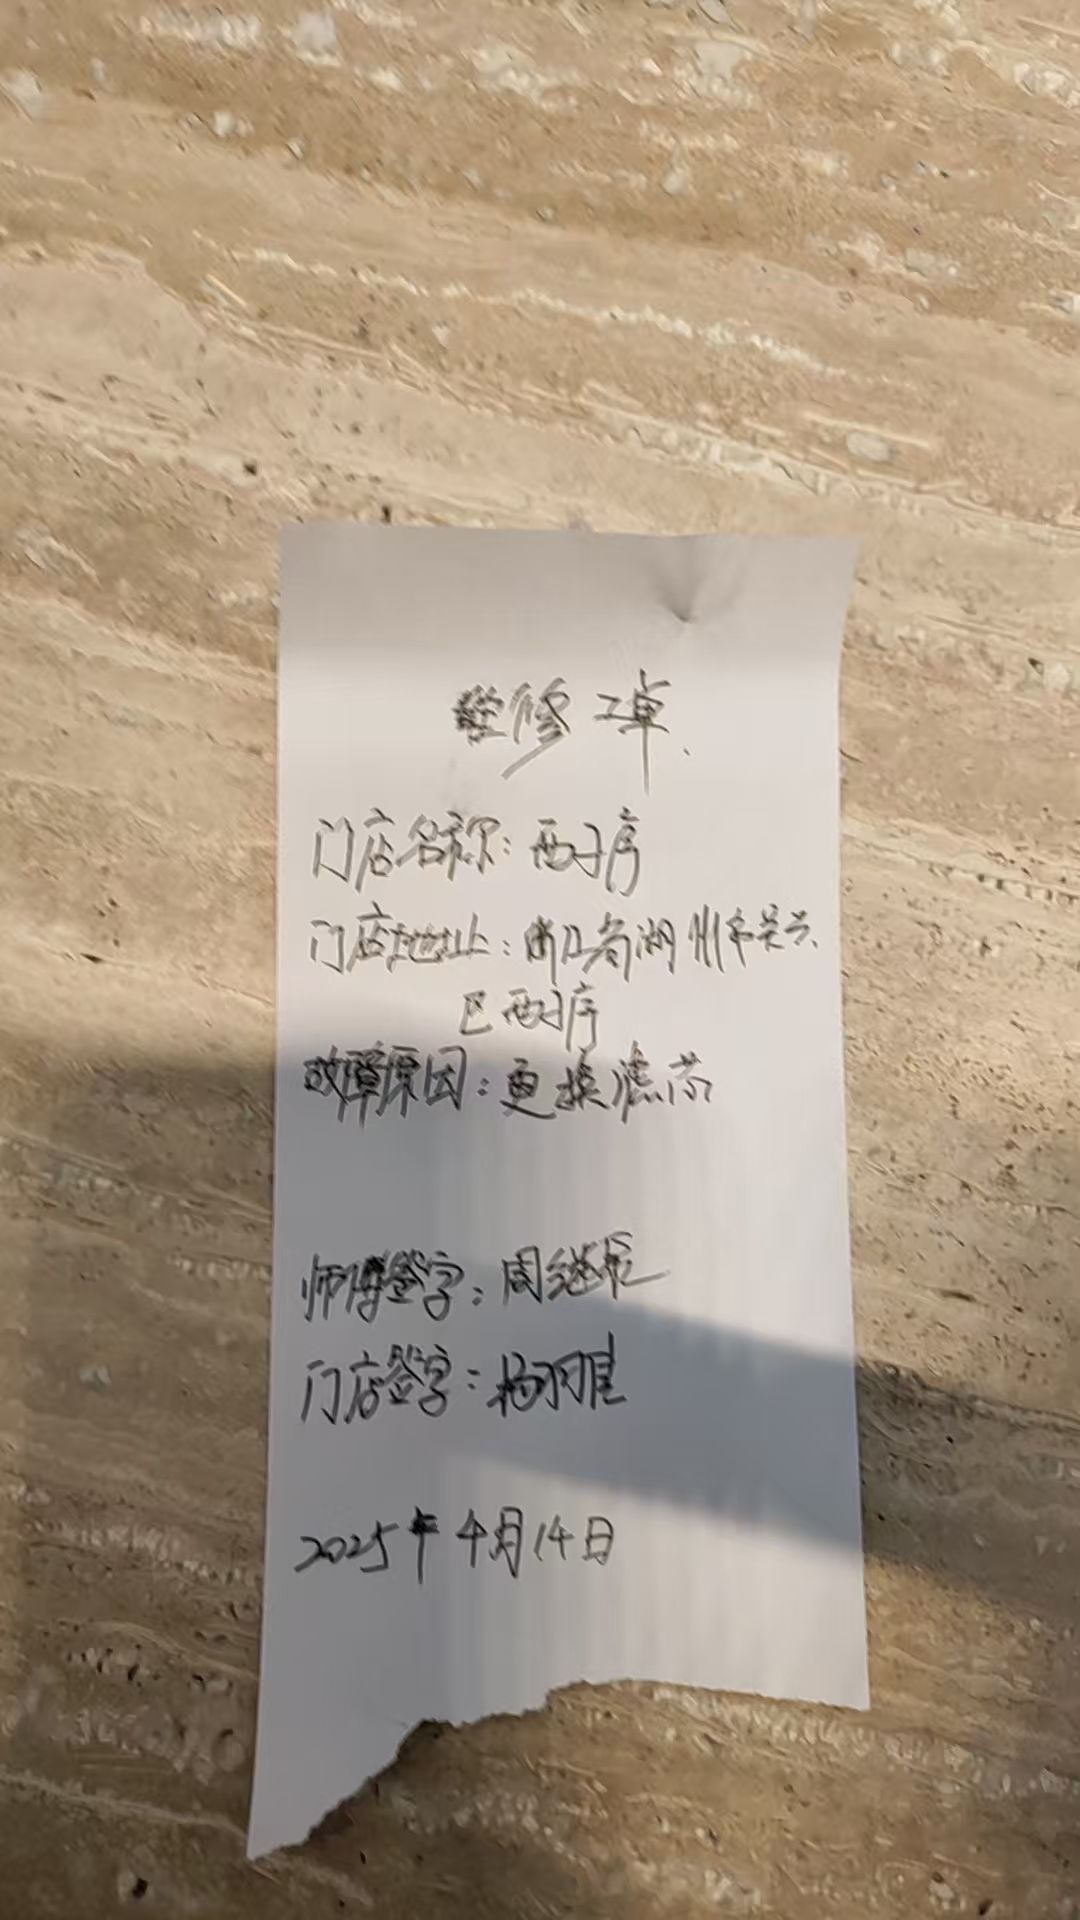 维修工单
门店名称：西子序
门店地址：浙江省湖州市吴兴
区西子序
故障原因：更换滤芯
师傅签字：周继
门店签字：杨
2025年4月14日